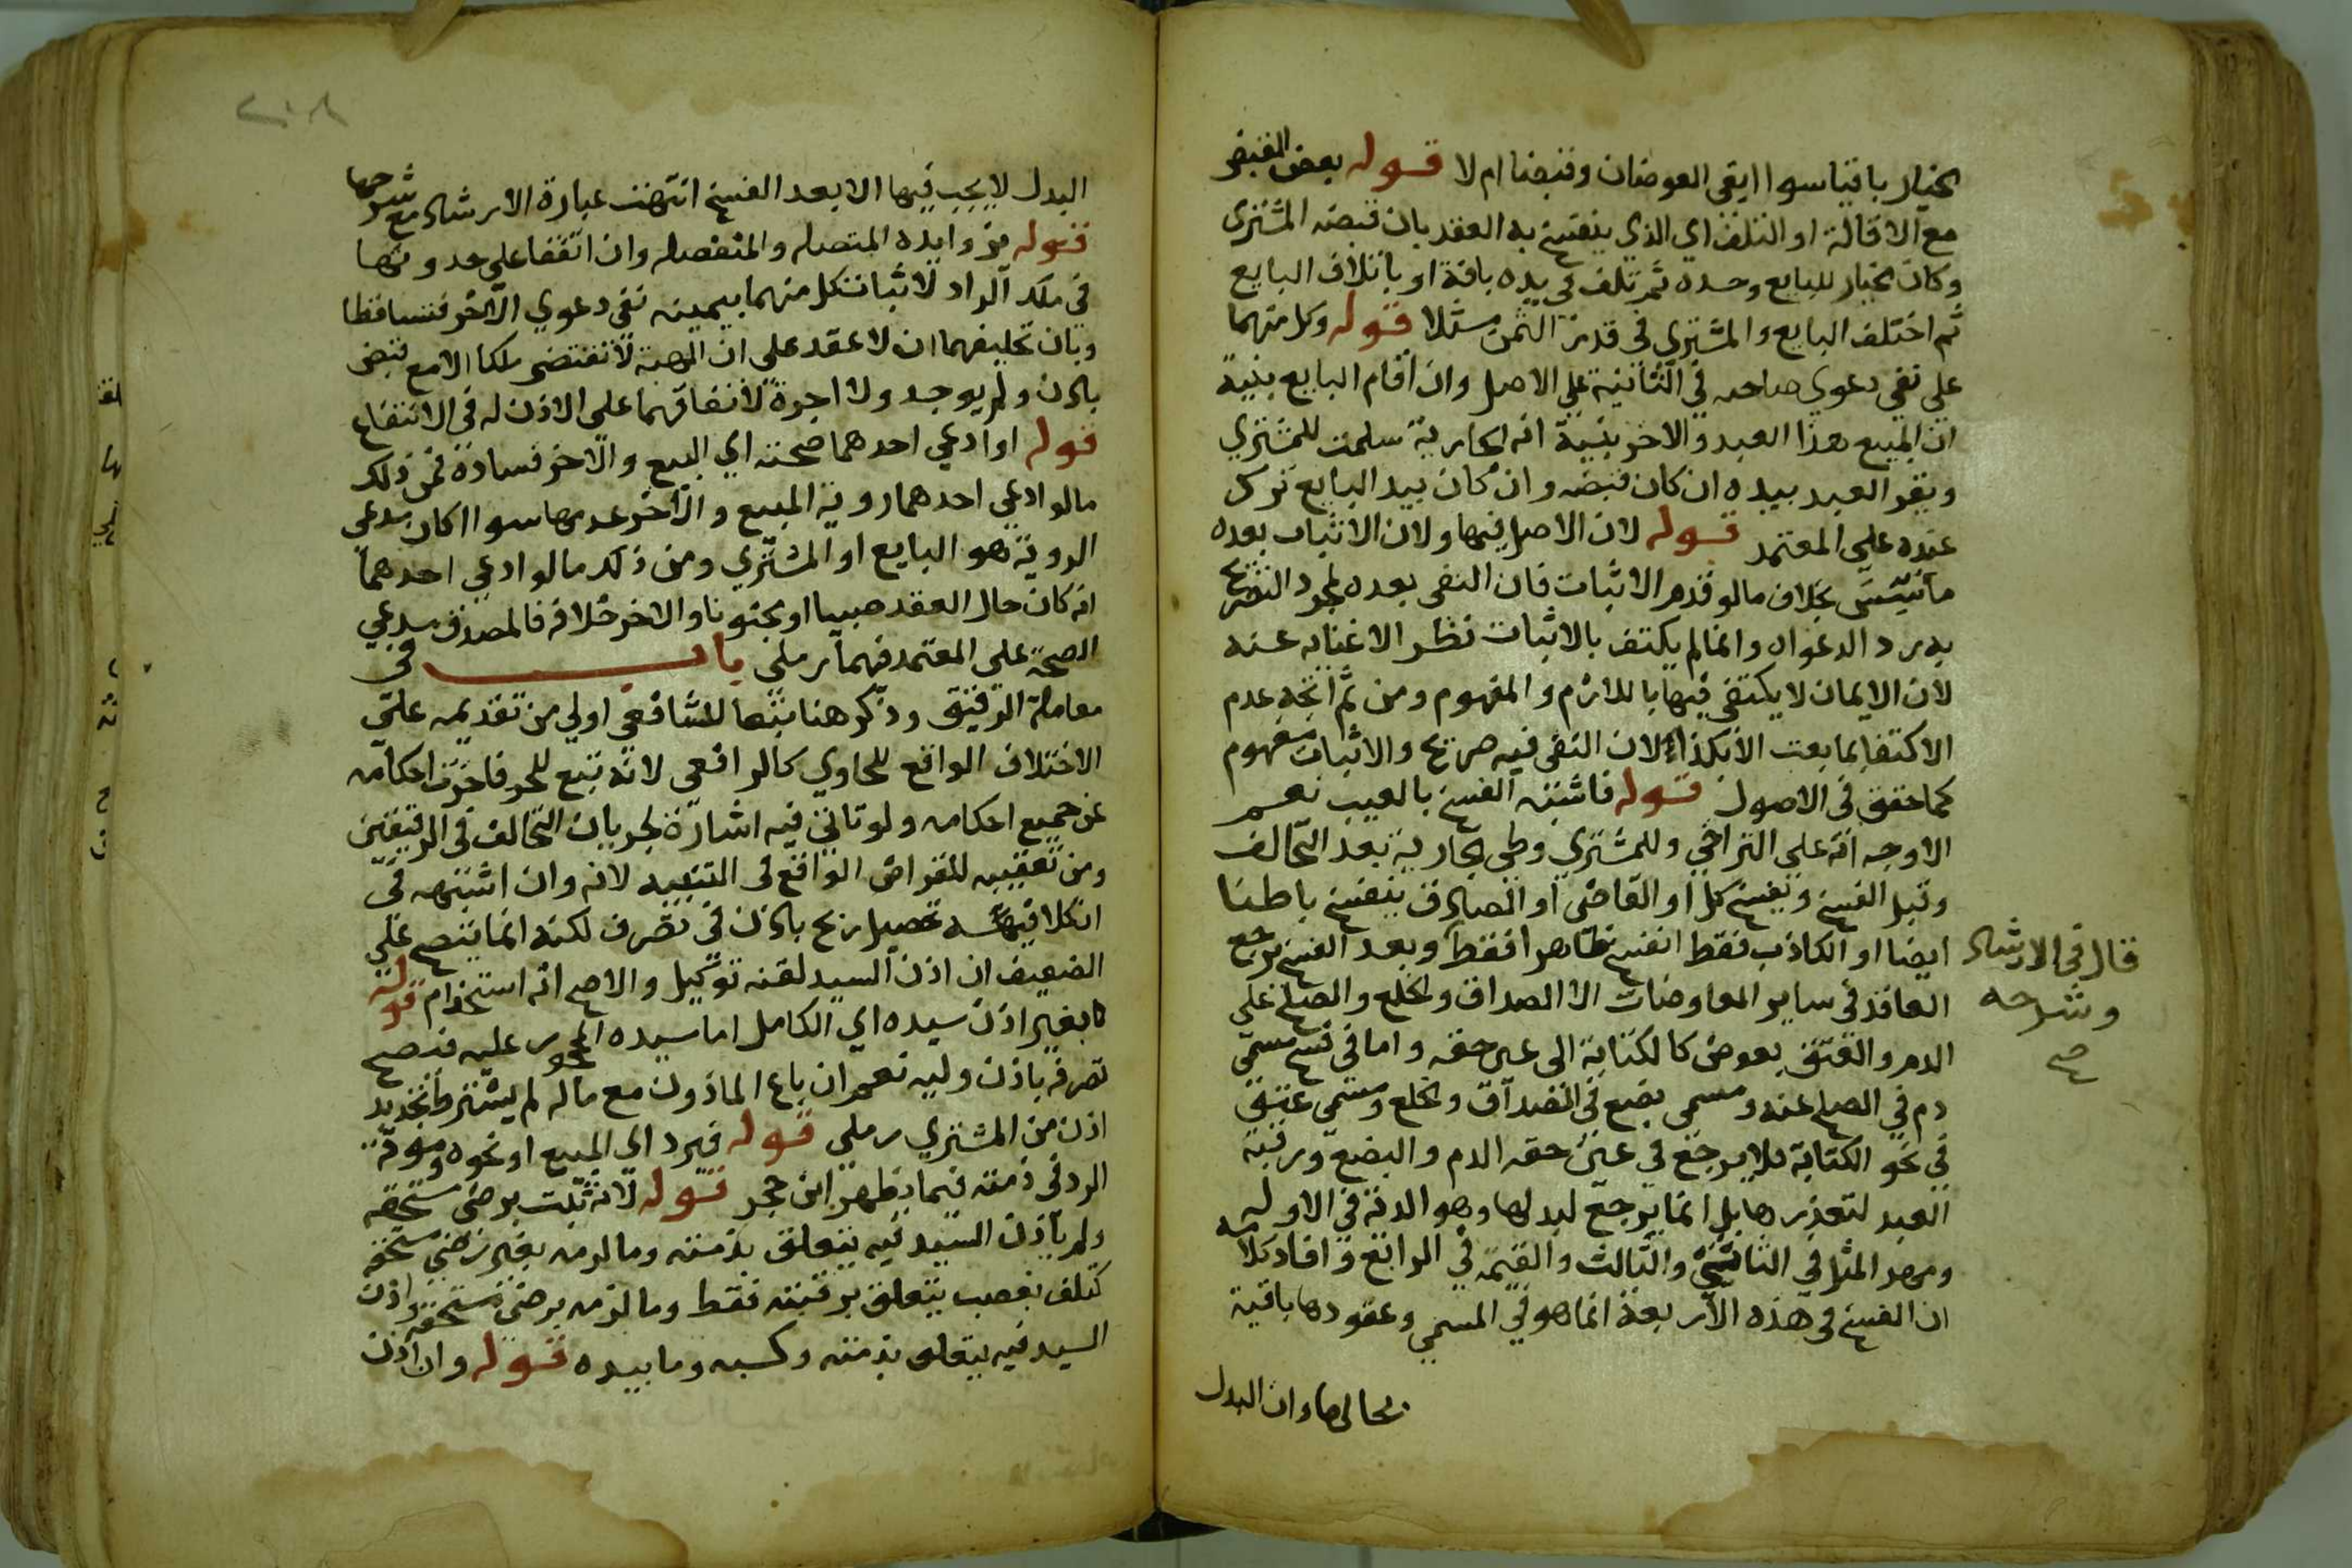 الخيار باقيا سوا ابقى العوضان وقبضا ام لا قوله بعض القبض
مع الاقالة او التلف اي الذي ينفسخ به العقد بان قبضه المشتري
وكان الخيار للبايع وحده ثم تلف في يده بافة او باتلاف البايع
ثم اختلف البايع والمشتري في قدر الثمن مثلا قوله وكل منهما
على نفي دعوى صاحبه في الثانية على الاصل وان اقام البايع بينة
ان المبيع هذا العبد والاخر بينة انه الجارية سلمت للمشتري
ويقر العبد بيده ان كان قبضه وان كان بيد البايع ترك
عنده على المعتمد قوله لان الاصل فيها ولان الاثبات بعده
بخلاف مالو قدم الاثبات فان النفي بعده لمجرد التصريح
به برد الدعواه وانما لم يكتف بالاثبات نظرا لاغنايه عنه
لان الايمان لا يكتفى فيها باللازم والمفهوم ومن ثم اتجه عدم
الاكتفا بما بعت الا بكذا لان النفي فيه صريح والاثبات مفهوم
كما حقق في الاصول قوله فاشبه الفسخ بالعيب نعم
الاوجه انه على التراخي وللمشتري وطي الجارية بعد التحالف
وقبل الفسخ ويفسخ كل او القاضي او الصادق ينفسخ باطنا
ايضا او الكاذب فقط انفسخ ظاهرا فقط وبعد الفسخ يرجع
العاقد في ساير المعاوضات الا الصداق والخلع والصلح على
الدم والعتق بعوض كالكتابة الى عين حقه واما في فسخ مسمى
دم في الصلح عنه ومسمى بضع في الصداق والخلع ومسمى عتق
في نحو الكتابة فلا يرجع في عين حقه الدم والبضع ورقبة
العبد لتعذرها بل انما يرجع لبدلها وهو الدية في الاول
ومهر المثل في الثاني والثالث والقيمة في الرابع وافاد كلامه
ان الفسخ في هذه الاربعة انما هو في المسمى وعقودها باقية
بحالها وان البدل
قال في الارشاد
وشرحه
صح
٢٠٨
البدل لا يجب فيها الا بعد الفسخ انتهت عبارة الارشاد مع شرحها
قوله بزوايده المتصله والمنفصله وان اتفقا على حدوثها
في ملك الراد لاثبات كل منهما بيمينه نفي دعوى الاخر فتساقطا
وبان تحليفهما ان لا عقد على ان الهبة لا تقتضي ملكا الا مع قبض
باذن ولم يوجد ولا اجرة لاتفاقهما على الاذن له في الانتفاع
قوله او ادعى احدهما صحته اي البيع والاخر فساده فمن ذلك
مالو ادعى احدهما روية المبيع والاخر عدمها سوا اكان مدعي
الروية هو البايع او المشتري ومن ذلك مالو ادعى احدهما
انه كان حال العقد صبيا او مجنونا والاخر خلافه فالمصدق مدعي
الصحة على المعتمد فيهما رملي باب في
معاملة الرقيق وذكر هنا تبعا للشافعي اولى من تقديمه على
الاختلاف الواقع للحاوي كالرافعي لانه تبع للحر فاخرت احكامه
عن جميع احكامه ولو تاتى فيه اشارة لجريان التحالف في الرقيقين
ومن تعقيبه للقراض الواقع في التنبيه لانه وان اشبهه في
ان كلا فيه تحصيل ربح باذن في تصرف لكنه انما يتضح على
الضعيف ان اذن السيد لقنه توكيل والاصح انه استخدام قوله
لا بغير اذن سيده اي الكامل اما سيده المحجور عليه فيصح
تصرفه باذن وليه نعم ان باع الماذون مع ماله لم يشترط تجديد
اذن من المشتري رملي قوله فيرد اي المبيع او نحوه ومونة
الرد في ذمته فيما يظهر ابن حجر قوله لانه ثبت برضى مستحقه
ولم ياذن السيد فيه يتعلق بذمته وما لزمه بغير رضى مستحقه
كتلف بغصب يتعلق برقبته فقط وما لزمه برضى مستحقه واذن
السيد فيه يتعلق بذمته وكسبه وما بيده قوله وان اذن